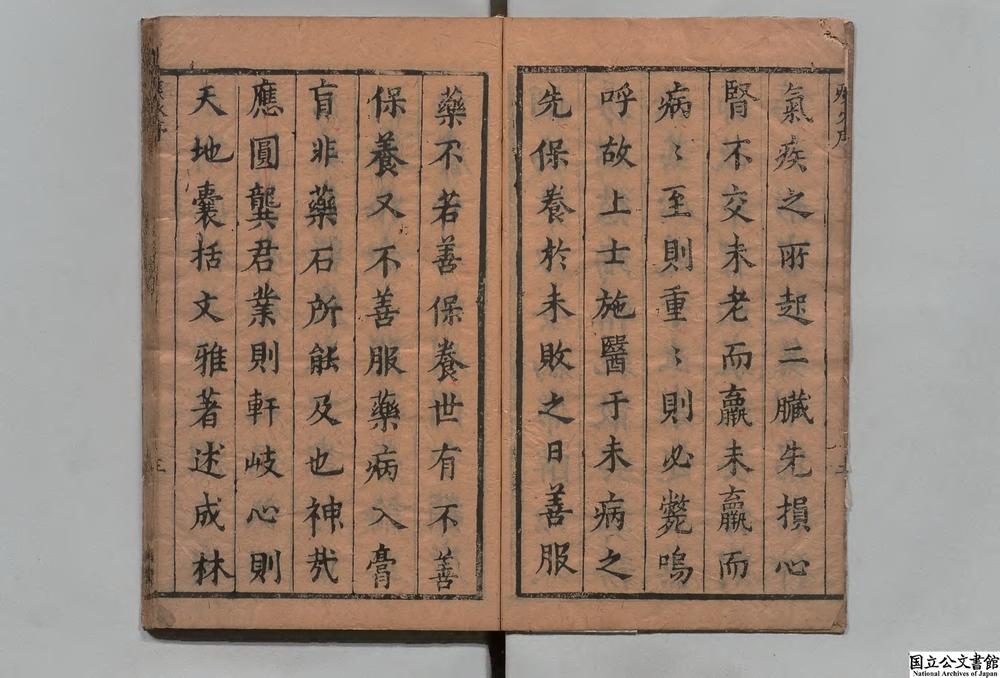 氣疾之所起二臟先損心
腎不交未老而羸未羸而
病〻至則重〻則必斃嗚
呼故上士施醫于未病之
先保養於未敗之日善服
藥不若善保養世有不善
保養又不善服藥病入膏
肓非藥石所能及也神哉
應圓龔君業則軒岐心則
天地囊括文雅著述成林
三
国立公文書館
National Archives of Japan